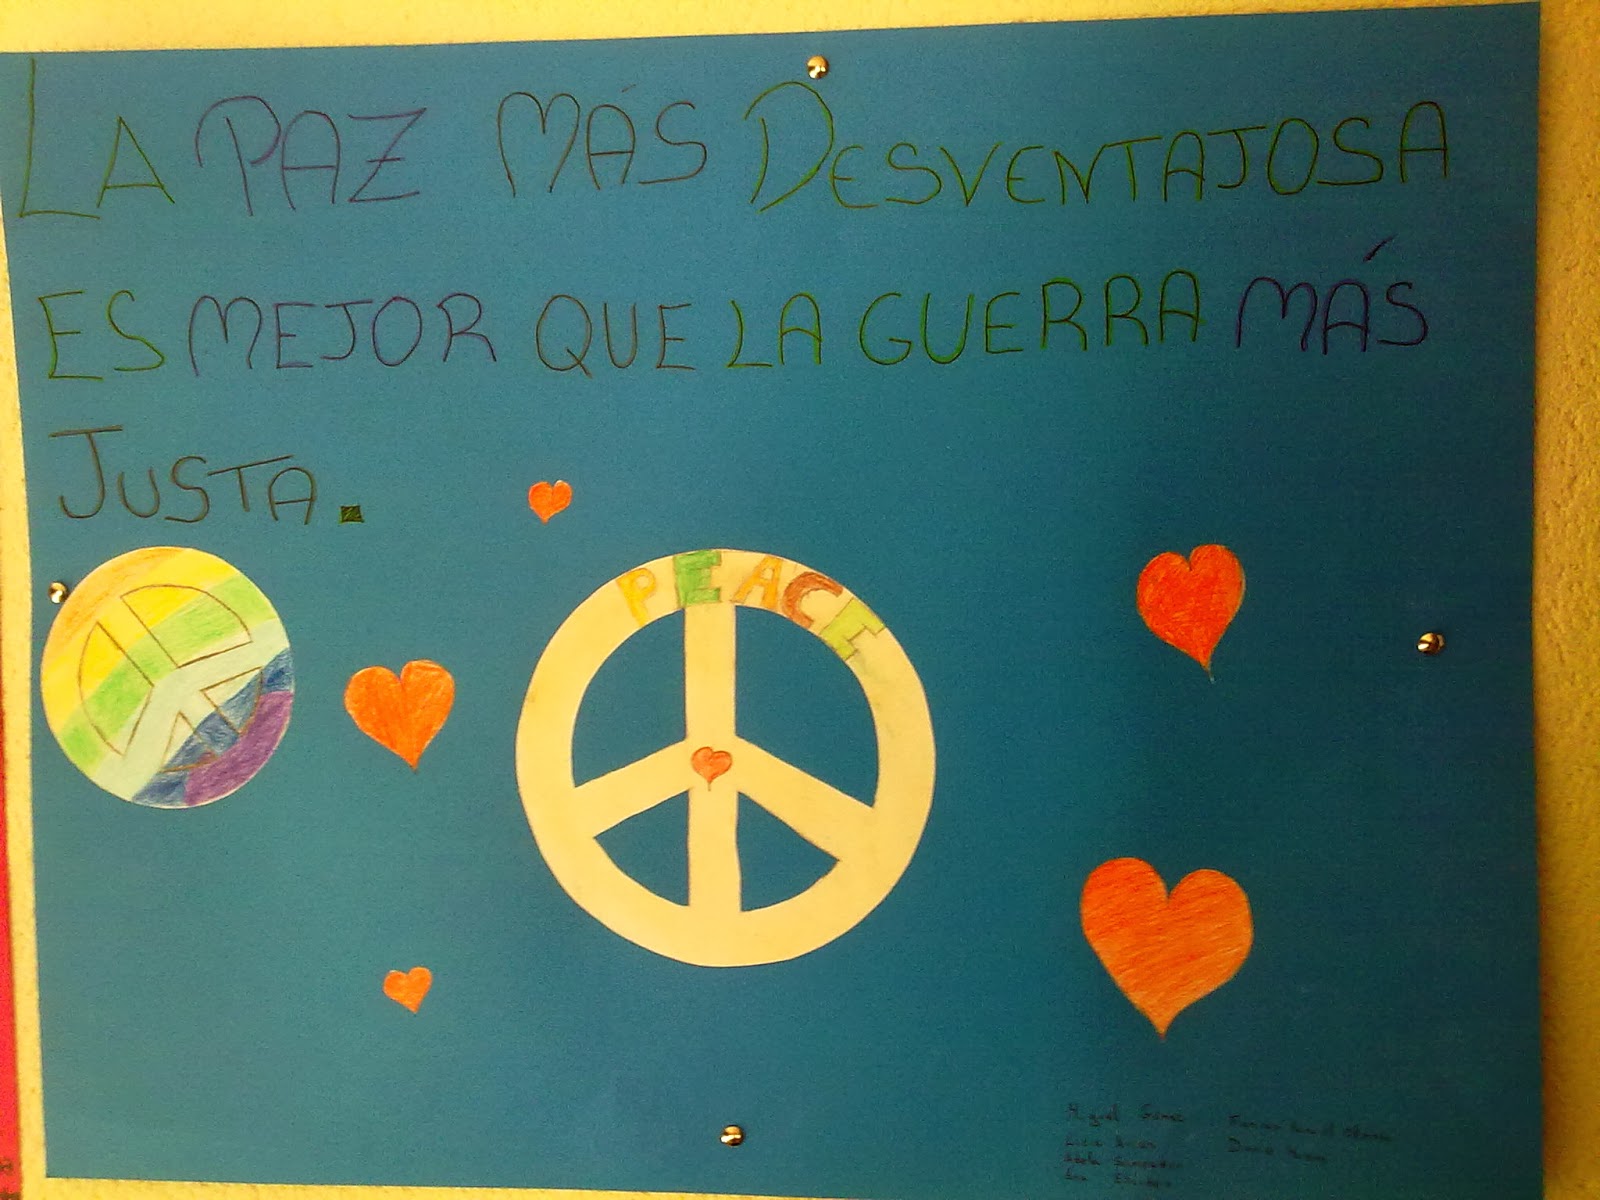 LA PAZ MÁS DESVENTAJOSA
ES MEJOR QUE LA GUERRA MÁS
JUSTA.
PEACE
Miguel Gómez
Lucía
Adela
Ana